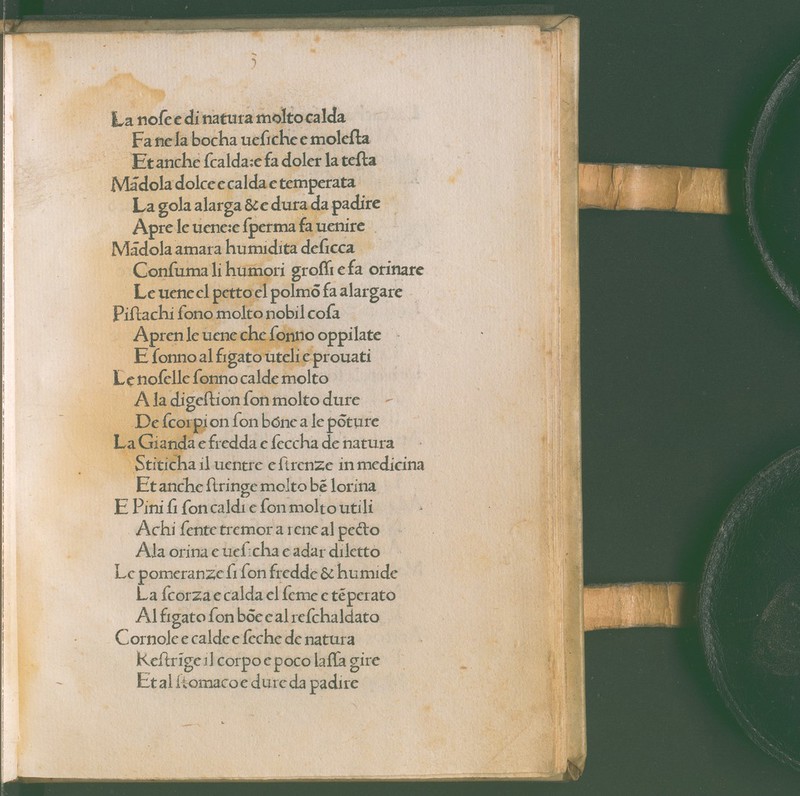 3
La noſe e di natura molto calda
Fa ne la bocha ueſiche e moleſta
Et anche ſcalda:e fa doler la teſta
Mãdola dolce e calda e temperata
La gola alarga & e dura da padire
Apre le uene:e ſperma fa uenire
Mãdola amara humidita deſicca
Conſuma li humori groſſi e fa orinare
Le uene el petto el polmõ fa alargare
Piſtachi ſono molto nobil coſa
Apren le uene che ſonno oppilate
E ſonno al figato uteli e prouati
Le noſelle ſonno calde molto
A la digeſtion ſon molto dure
De ſcorpion ſon bóne a le põture
La Gianda e fredda e ſeccha de natura
Stiticha il uentre e ſtrenze in medicina
Et anche ſtringe molto bẽ lorina
E Pini ſi ſon caldi e ſon molto utili
Achi ſente tremor a rene al pecto
Ala orina e ueſicha e adar diletto
Le pomeranze ſi ſon fredde & humide
La ſcorza e calda el ſeme e tẽperato
Al figato ſon bõe e al reſchaldato
Cornole e calde e ſeche de natura
Reſtrĩge il corpo e poco laſſa gire
Et al ſtomaco e dure da padire